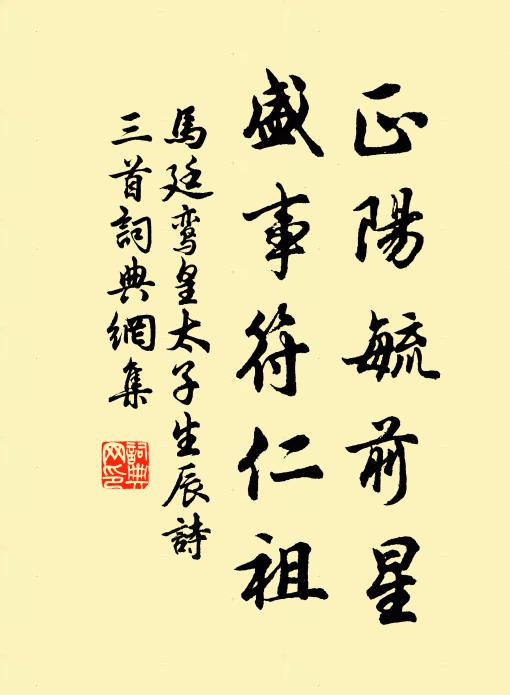 正陽毓前星
盛事符仁祖
馬廷鸾皇太子生辰詩
三首詞典網集
詞典
网印